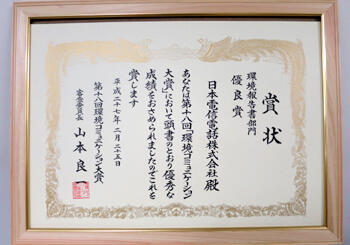 賞状
環境報告書部門
優良賞
日本電信電話株式会社 殿
あなたは第十八回「環境コミュニケーション
大賞」において頭書のとおり優秀な
成績をおさめられましたのでこれを
賞します
平成二十七年二月二十五日
第十八回環境コミュニケーション大賞
審査委員長
山本良一